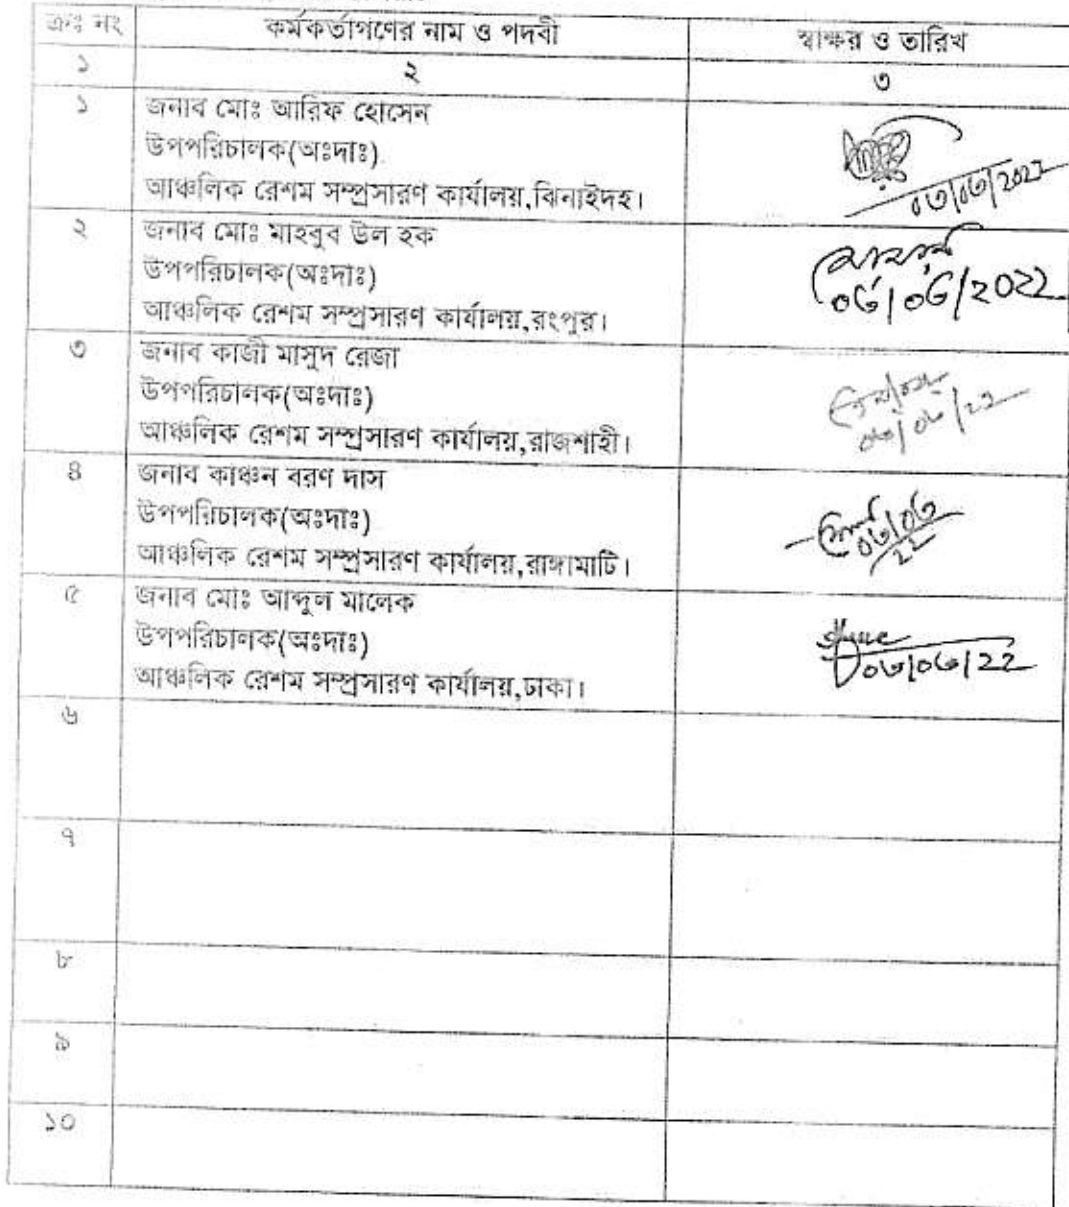 ক্রঃ নং কর্মকর্তাগণের নাম ও পদবী স্বাক্ষর ও তারিখ
১ ২ ৩
১ জনাব মোঃ আরিফ হোসেন
উপপরিচালক(অঃদাঃ)
আঞ্চলিক রেশম সম্প্রসারণ কার্যালয়,ঝিনাইদহ।
২ জনাব মোঃ মাহবুব উল হক
উপপরিচালক(অঃদাঃ)
আঞ্চলিক রেশম সম্প্রসারণ কার্যালয়,রংপুর।
০৬/০৬/২০২২
৩ জনাব কাজী মাসুদ রেজা
উপপরিচালক(অঃদাঃ)
আঞ্চলিক রেশম সম্প্রসারণ কার্যালয়,রাজশাহী।
০৬/০৬/২২
৪ জনাব কাঞ্চন বরণ দাস
উপপরিচালক(অঃদাঃ)
আঞ্চলিক রেশম সম্প্রসারণ কার্যালয়,রাঙ্গামাটি।
০৬/০৬
২২
৫ জনাব মোঃ আব্দুল মালেক
উপপরিচালক(অঃদাঃ)
আঞ্চলিক রেশম সম্প্রসারণ কার্যালয়,ঢাকা।
০৬/০৬/২২
৬
৭
৮
৯
১০